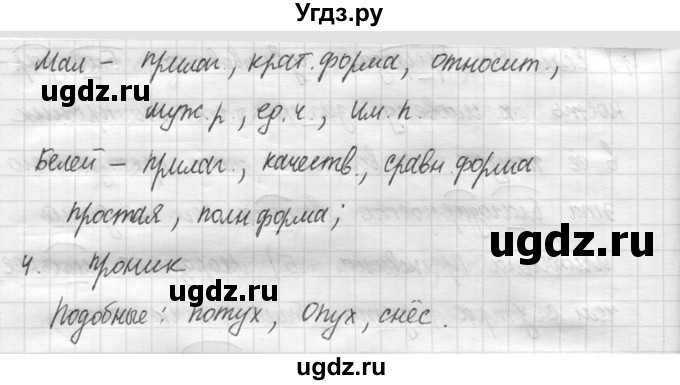 Угдз.ру
Мал – прилаг., крат. форма, относит.,
муж.р., ед.ч., Им.п.
Белей – прилаг., качеств., сравн. форма
простая, полн форма;
4. проник
Подобные: потух, Опух, снёс.
ugdz.ru
ugdz.ru
ugdz.ru
ugdz.ru
ugdz.ru